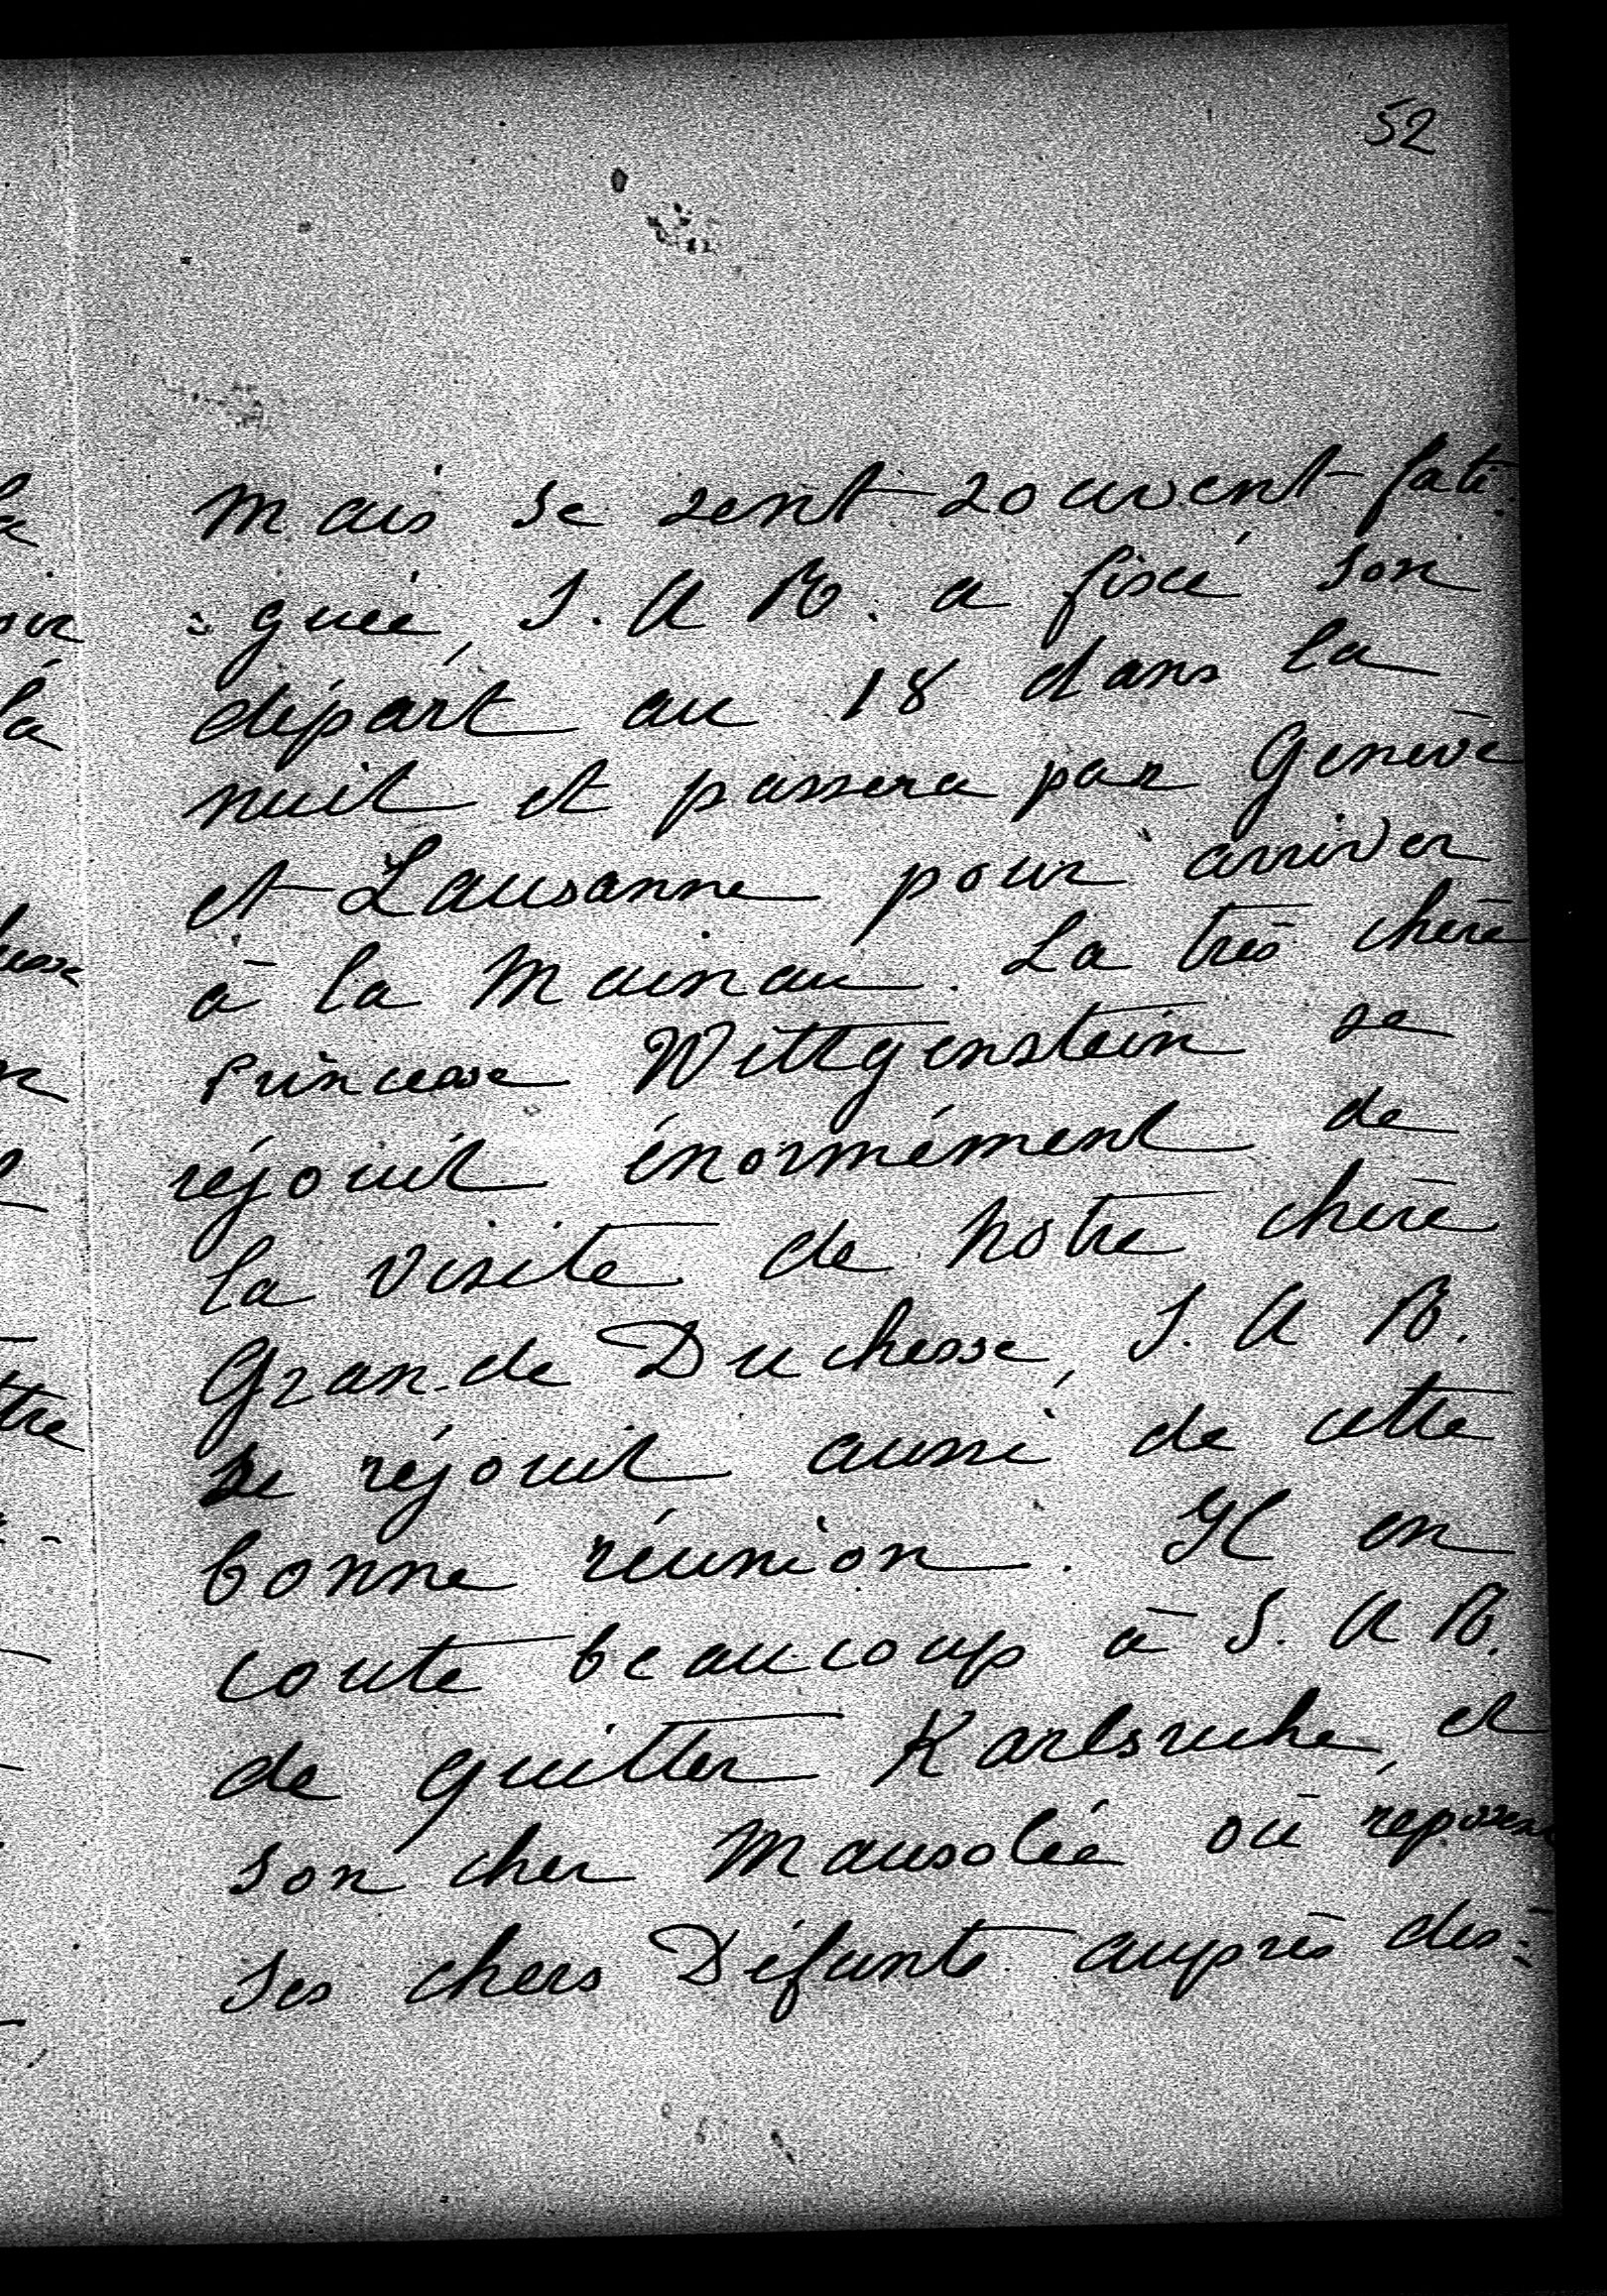 52
mais se sent souvent fati:
:guée, S. A R. a fixé son
départ au 18 dans la
nuit et passera par Genève
et Lausanne pour arriver
à la Mainau. La très chère
Princesse Wittgenstein se
réjouit énormément de
la visite de notre chère
Grande Duchesse, S. A R.
se réjouit aussi de cette
bonne réunion. Il en
coute beaucoup à S. A R.
de quitter Karlsruhe, et
son cher Mausolée où reposent
ses chers Défunts auprès des: